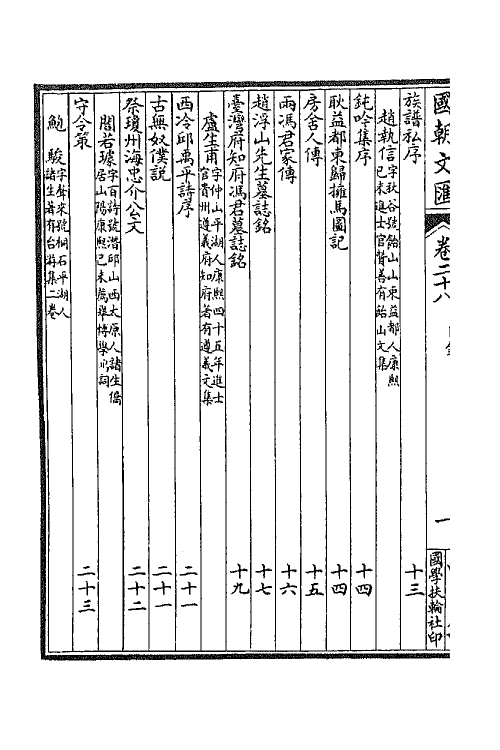 國朝文匯 卷二十八 目錄 一 國學扶輪社印
族譜私序 十三
趙執信 字秋谷號飴山山東益都人康熙
己未進士官贊善有飴山文集
鈍吟集序 十四
耿益都東歸擁馬圖記 十四
房舍人傳 十五
兩馮君家傳 十六
趙浮山先生墓誌銘 十七
臺灣府知府馮君墓誌銘 十九
盧生甫 字仲山平湖人康熙四十五年進士
官貴州遵義府知府著有遵義文集
西冷邱禹平詩序 二十一
古無奴僕說 二十一
祭瓊州海忠介公文 二十二
閻若璩 字百詩號潛邱山西太原人諸生僑
居山陽康熙己未薦舉博學鴻詞
守令策 二十三
鮑駿 字聲來號桐石平湖人
諸生著有台游集二卷